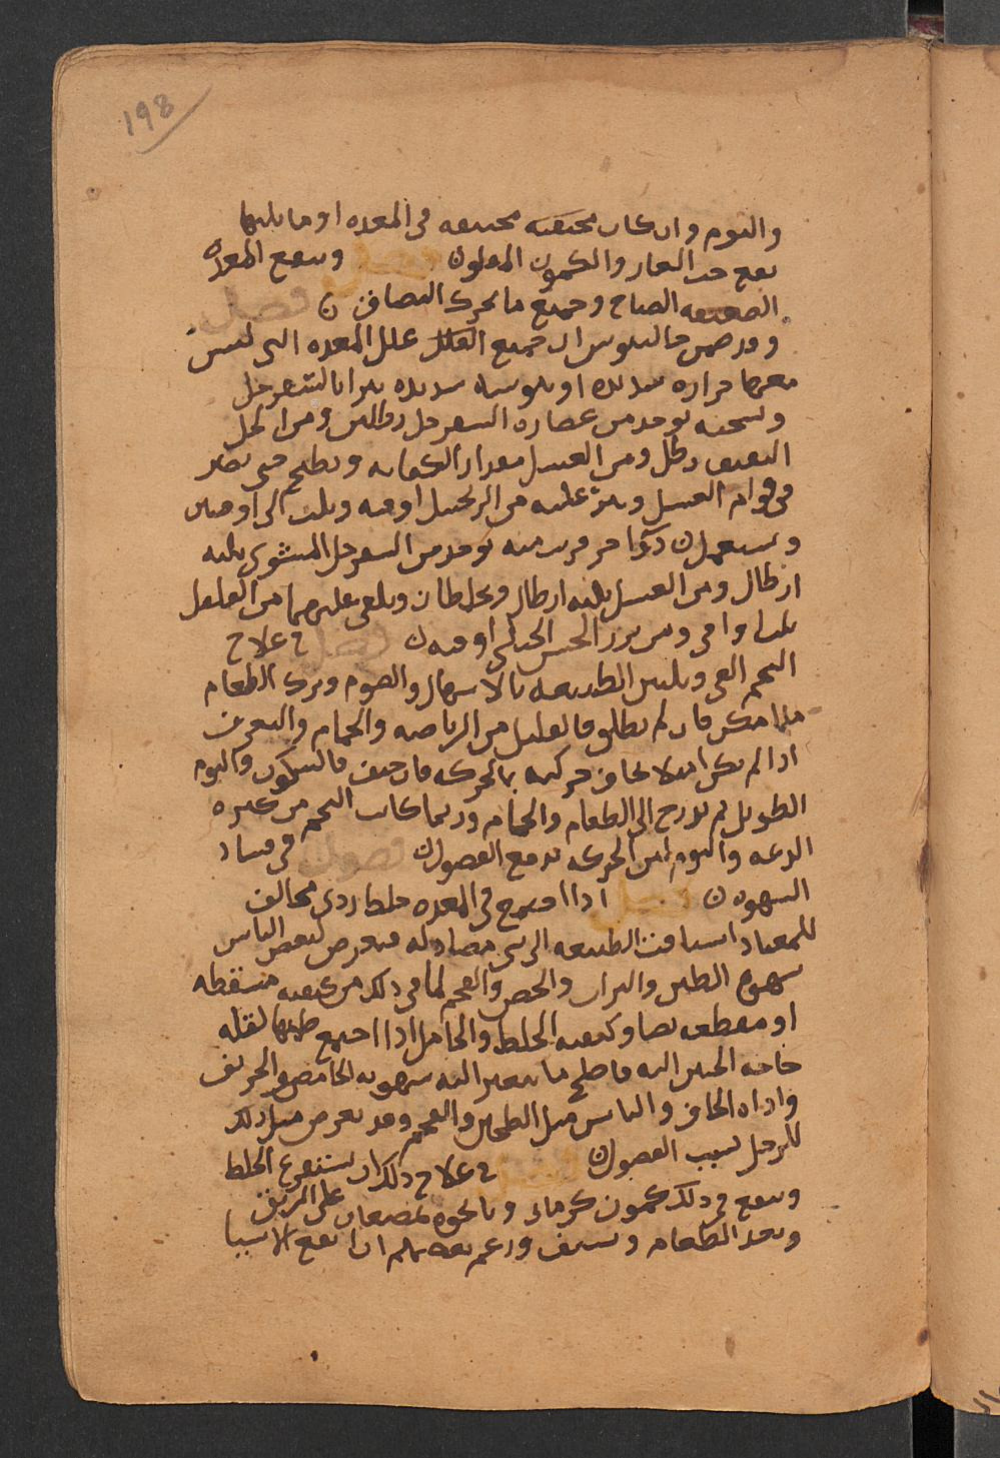 198
والنوم وان كان محتقنه محتبسه فى المعده او ما يليها
نفع حب الغار والكمون المقلون فصل وينفع المعده
الضعيفه الصياح وجميع ما يحرك النصافن ن فصل
وقد ضمن جالينوس ان جميع العلل علل المعده التى ليس
معها حراره شديده او يبوسه شديده تبرا بالسفرجل
ونسخته يوخذ من عصاره السفرجل رطلين ومن الخل
الثقيف رطل ومن العسل مقدار الكفايه ويطبخ حتى يصير
فى قوام العسل وينثر عليه من الزنجبيل اوقيه وثلث الى اوقيتين
ويستعمل ن دوا اخر قريب منه يوخذ من السفرجل المشوى ثلثه
ارطال ومن العسل ثلثه ارطال ويخلطان ويلقى عليهما من الفلفل
ثلث اواقى ومن بزر الجبلى اوقيه ن فصل فى علاج
التخم القى وتليين الطبيعه بالاسهال والصوم وترك الطعام
ما امكن فان لم يطلق فالقليل من الرياضه والحمام والتعريق
اذا لم يكن امتلا يخاف حركته بالحركه فان خيف فالسكون والنوم
الطويل ثم يدرج الى الطعام والحمام وربما كانت التخم من كثره
الدعه والنوم لمن الحركه تدفع الفصول ن فصول فى فساد
الشهوه ن فصل اذا اجتمع فى المعده خلط ردى مخالف
للمعتاد اشتاقت الطبيعه الى شى مضاد له فيعرض لبعض الناس
شهوه الطين والتراب والجص والفحم لما فى ذلك من كيفيه منشفه
او مقطعه تضاد كيفيه الخلط والحامل اذا احتبس طمثها لقله
حاجه الجنين اليه فاصلح ما تصير اليه شهوه الحامض والحريف
واداه الجاف واليابس مثل الطين والفحم وقد يعرض مثل ذلك
للرجل بسبب الفضول ن فصل فى علاج ذلك ان يستفرغ الخلط
وينفع فى ذلك كمون كرمانى ونانخوه يمضغان على الريق
وبعد الطعام ويستف وزعم بعضهم ان انفع الاشيا